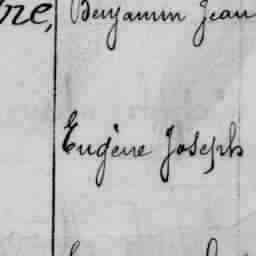 ne, Benjamin Jean
Eugène Joseph